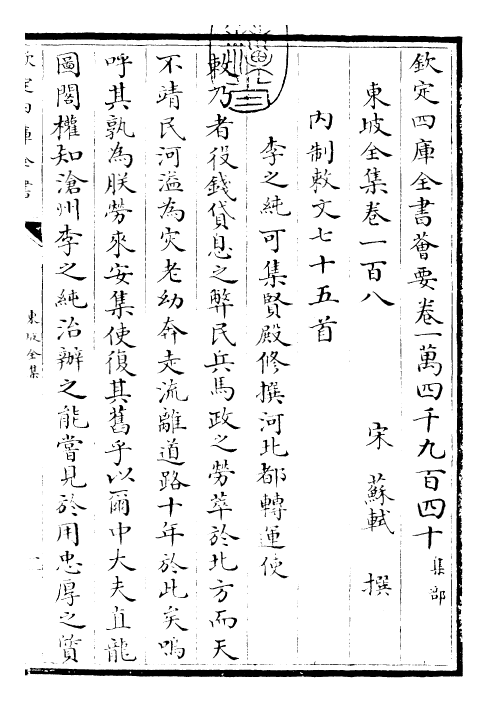 欽定四庫全書薈要卷一萬四千九百四十集部
東坡全集卷一百八
宋 蘇軾 撰
内制敕文七十五首
李之純可集賢殿修撰河北都轉運使
敕乃者役錢貸息之弊民兵馬政之勞萃於北方而天
不靖民河溢為灾老幼奔走流離道路十年於此矣嗚
呼其孰為朕勞來安集使復其舊乎以爾中大夫直龍
圖閣權知滄州李之純治辦之能嘗見於用忠厚之質
欽定四庫全書
東坡全集